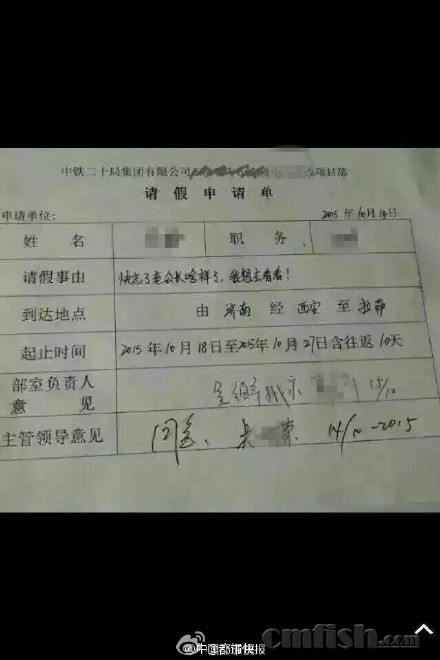 中铁二十局集团有限公司 改项目部
请假申请单
申请单位: 2015年10月14日
姓名 职务
请假事由 快忘了老公长啥样了,我想去看看!
到达地点 由 济南 经 西安 至 拉萨
起止时间 2015年10月18日至2015年10月27日含往返10天
部室负责人
意见 15/10
主管领导意见 同意、 14/10-2015
cmfish.com